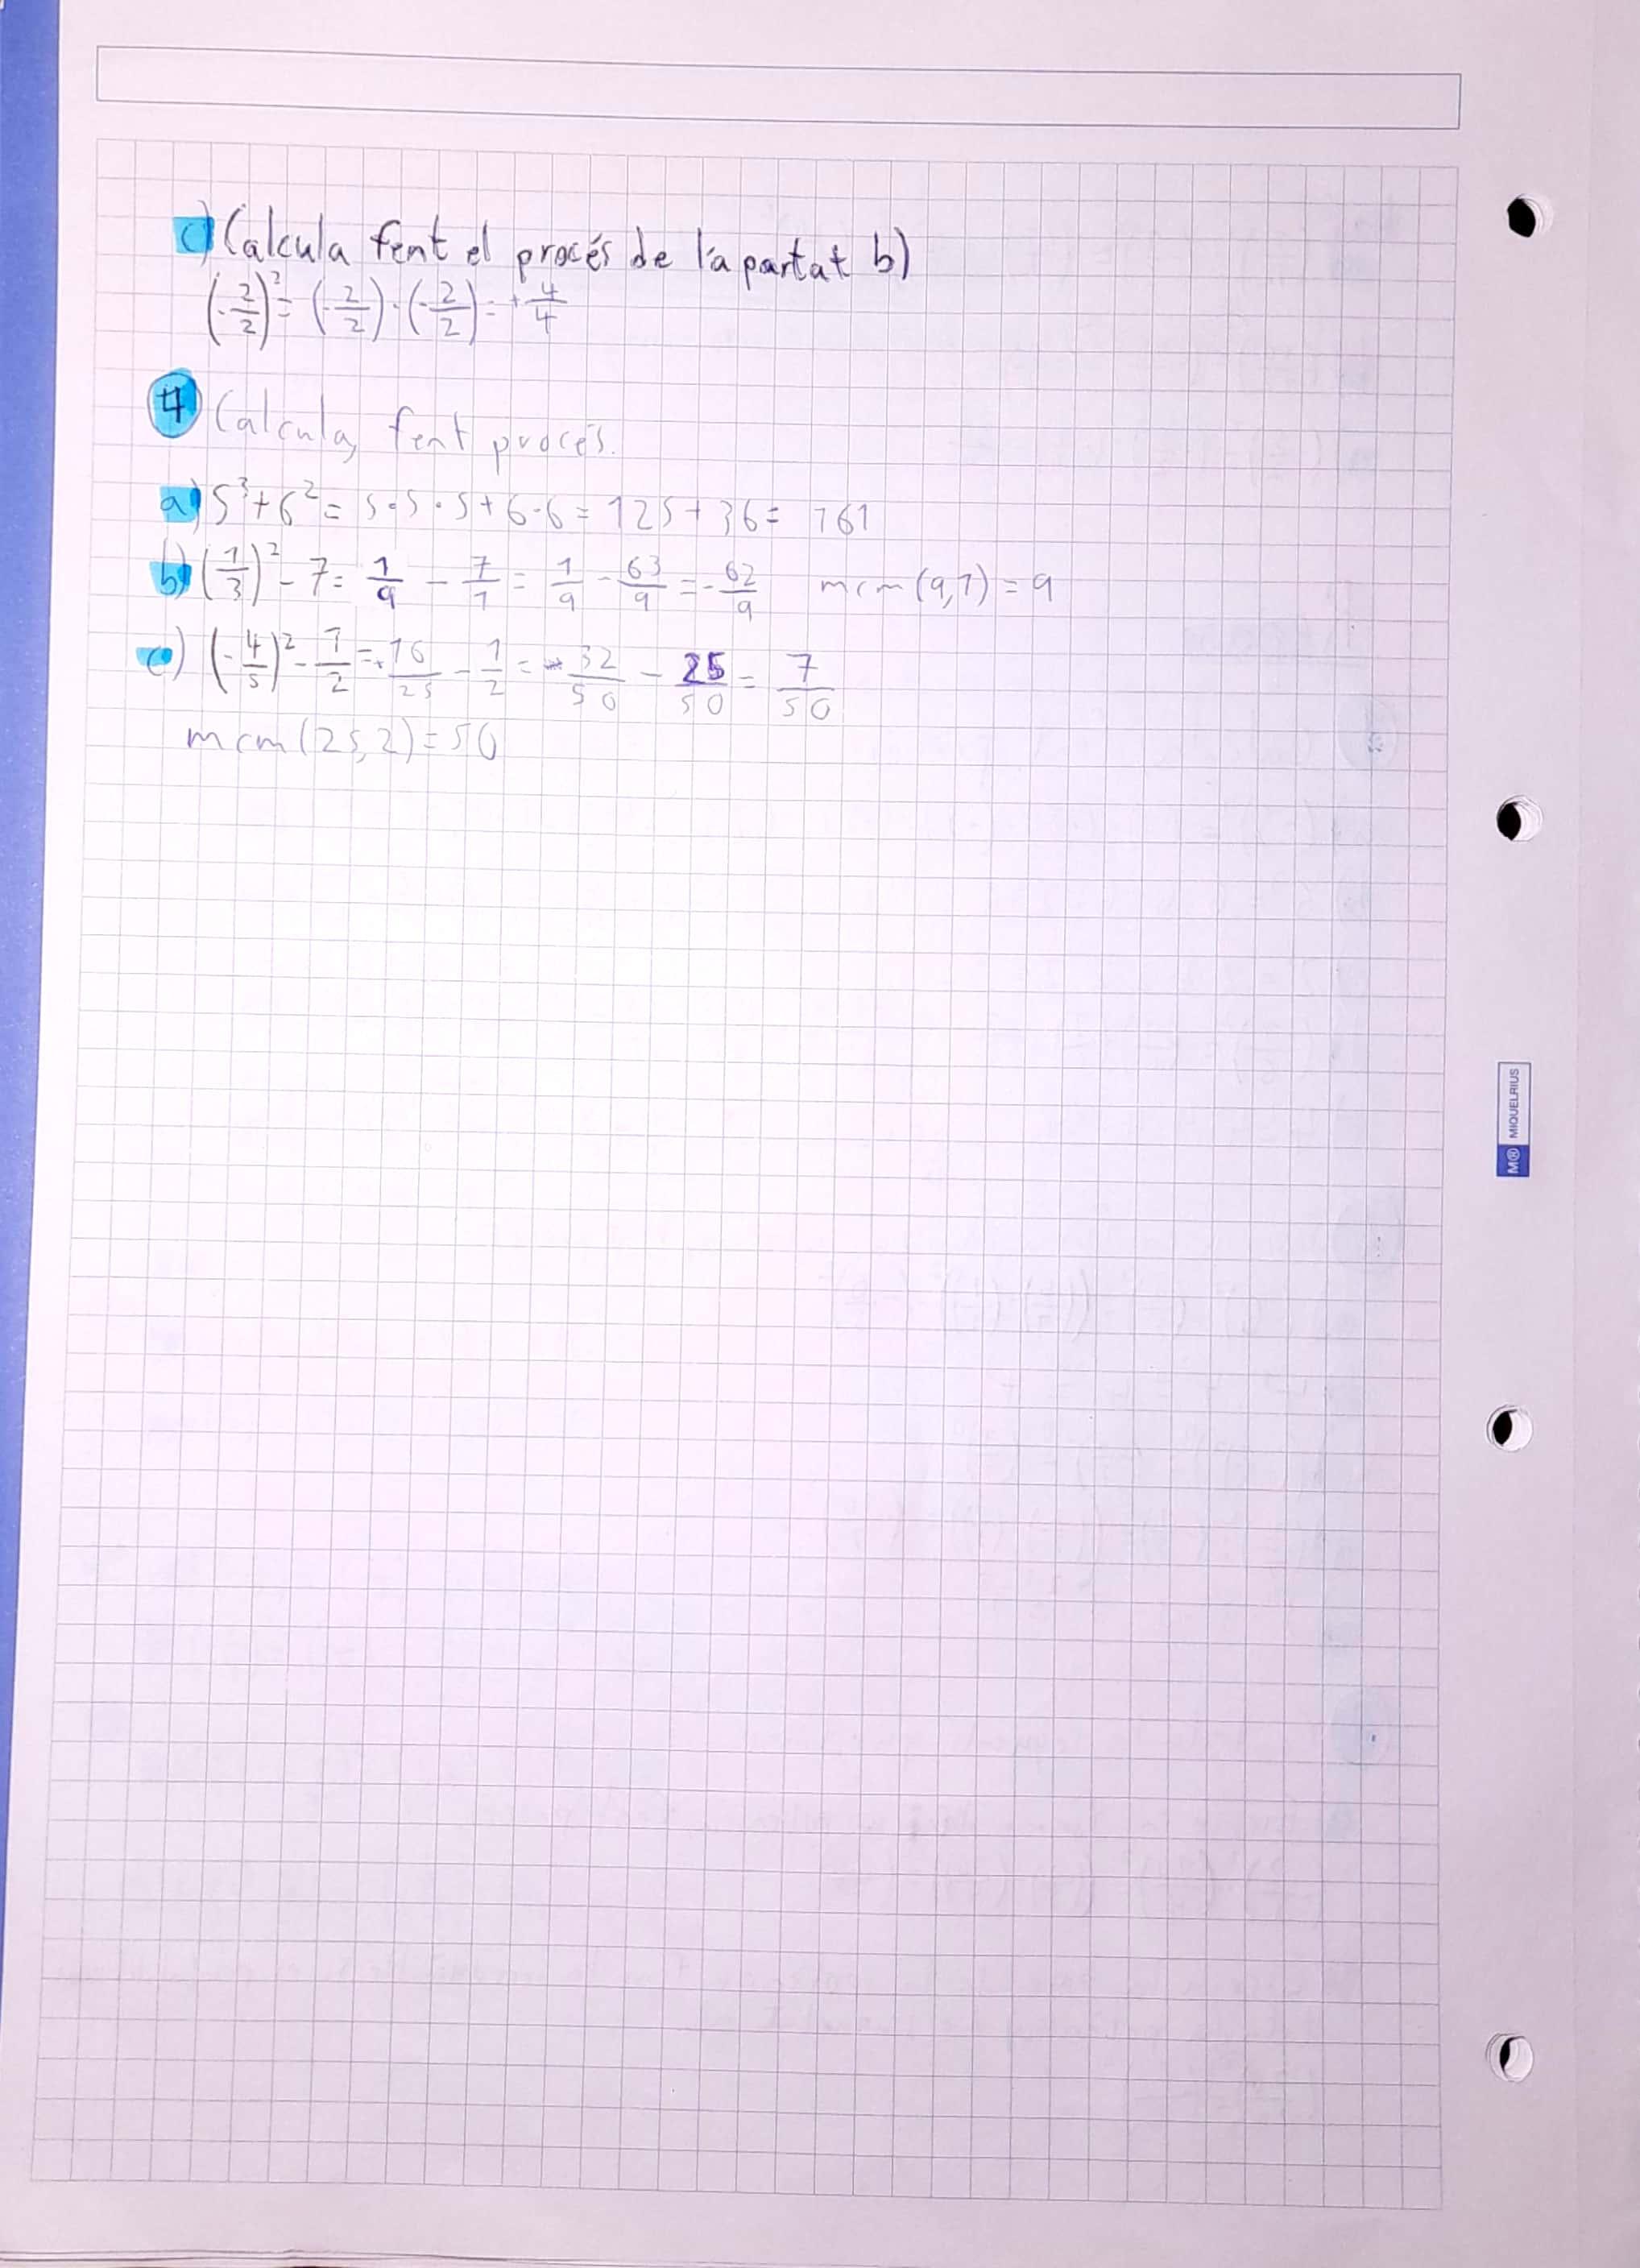 c) Calcula fent el procés de l'apartat b)
(-2/2)² = (-2/2)·(-2/2) = +4/4
4 Calcula, fent procés.
a) 5³+6² = 5·5·5+6·6 = 125+36 = 161
b) (1/3)² - 7 = 1/9 - 7/1 = 1/9 - 63/9 = -62/9 mcm(9,1) = 9
c) (-4/5)² - 1/2 = +16/25 - 1/2 = 32/50 - 25/50 = 7/50
mcm(25,2) = 50
M® MIQUELRIUS